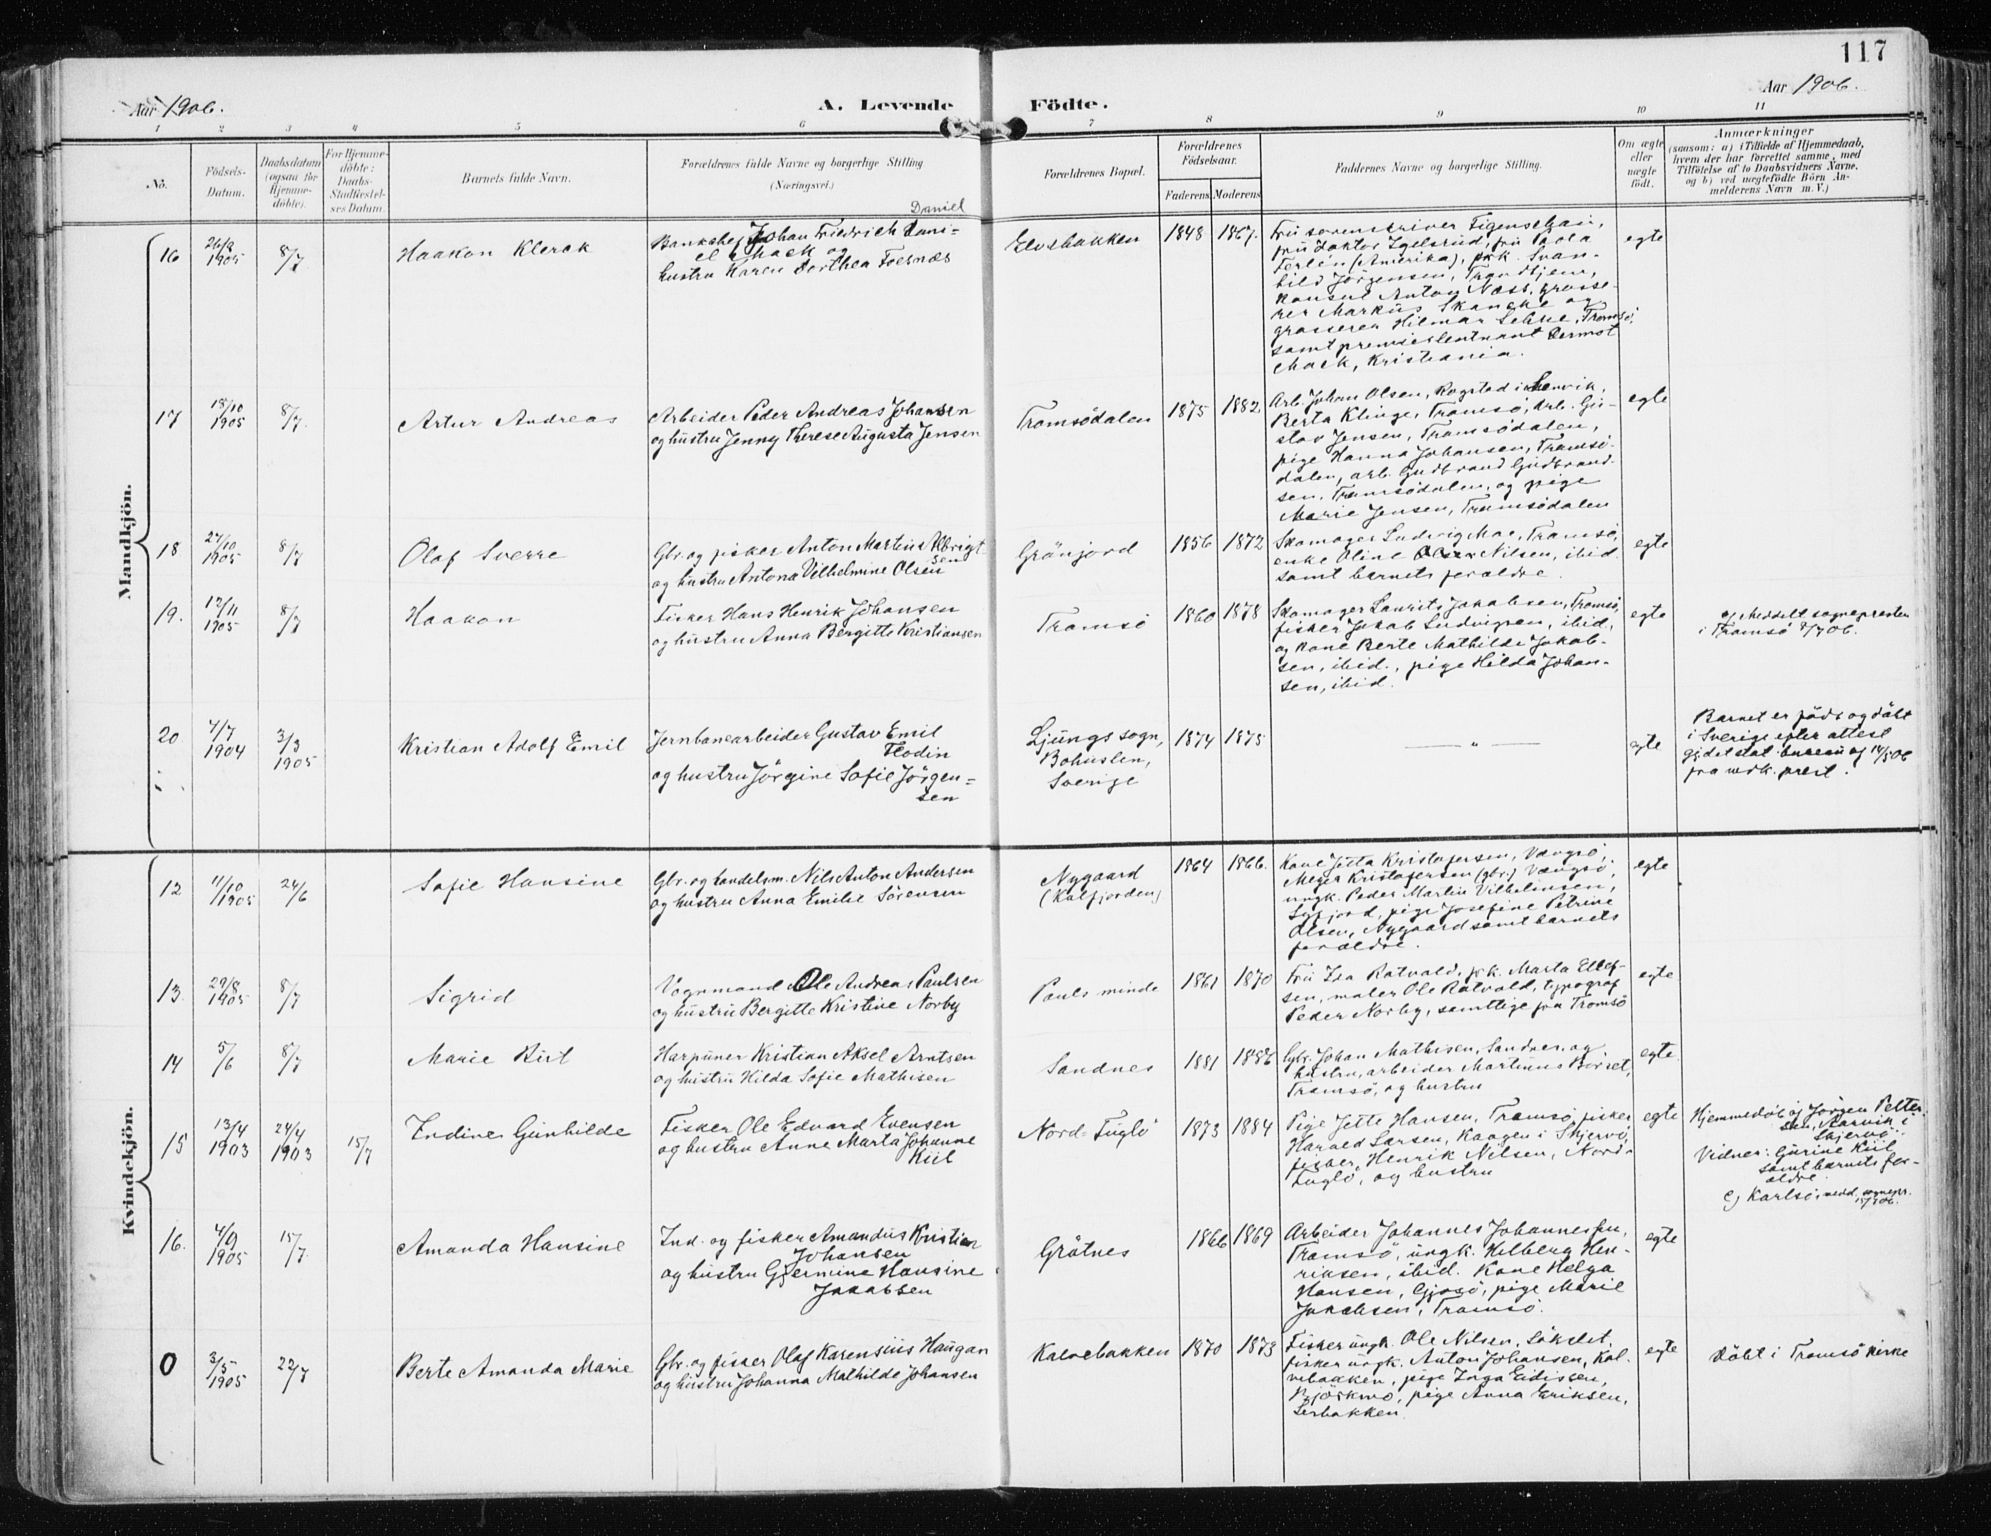 117
Aar 1906.
A. Levende Födte.
Aar 1906.
1 2 3 4 5 6 7 8 9 10 11
No.
Födsels-Datum.
Daabsdatum (ogsaa for Hjemme-döbte).
For Hjemme-döbte: Daabs-Stadfæstel-ses Datum.
Barnets fulde Navn.
Forældrenes fulde Navne og borgerlige Stilling
(Næringsvei.)
Forældrenes Bopæl.
Forældrenes Födselsaar.
Faderens Moderens
Faddernes Navne og borgerlige Stilling.
Om ægte eller uægte födt.
Anmærkninger
(saasom: a) i Tilfælde af Hjemmedaab,
hvem der har forrettet samme, med
Tilföielse af to Daabsvidners Navne,
og b) ved uægtefödte Börn An-
melderens Navn m. V.)
Mandkjön.
Daniel
16 26/8 1905 8/7 Haakon Klerck
Johan Friedrich Dani-
el Mack og
hustru Karen Dorthea Foesnæs
Elvebakken 1848 1867.
Fru sorenskriver
fru Doktor Igelsrud, fru
(Amerika), frk. Svan-
hild Jörgensen, Trondhjem,
konsul Anton Næss, grosse-
rer Markus Skancke og
grosserer Hilmar Tromsö,
samt premierleutnant Dermot
Mack, Kristiania.
egte
17 18/10 1905 8/7. Artur Andreas
Arbeider Peder Andreas Johansen
og hustru Jenny Therese Augusta Jensen
Tromsödalen 1875 1882
Arb. Johan Olsen, Rogstad i Lenvik,
Berta Klinge, Tromsö, Arb. Gu-
stav Jensen, Tromsödalen,
pige Hanna Johansen, Tromsö-
dalen, arb. Gudbrand Gudbrand-
sen, Tromsödalen, og pige
Marie Jensen, Tromsödalen
egte
18 27/10 1905 8/7 Olaf Sverre
Gbr. og fisker Anton Martin Albrigt-
sen
og hustru Antona Vilhelmine Olsen
Grönjord 1856 1872
Skomager Ludvig Moe, Tromsö,
enke Oline Nilsen, ibid.
samt barnets forældre.
egte
19. 12/11 1905 8/7 Haakon
Fisker Hans Henrik Johansen
og hustru Anna Bergitte Kristiansen
Tromsö 1860 1878
Skomager Laurits Jakobsen, Tromsö,
fisker Jakob Ludvigsen, ibid,
og Kone Berte Mathilde Jakob-
sen, ibid., pige Hilda Johan-
sen, ibid.
egte
Meddelt sognepresten
i Tromsö 9/7 06.
20. 4/7 1904 3/3 1905 Kristian Adolf Emil
Jernbanearbeider Gustav Emil
Flodin
og hustru Jörgine Sofie Jörgen-
sen
Ljungs sogn,
Bohuslen,
Sverige
1874 1875
— „ —
egte
Barnet er födt og döbt
i Sverige efter attest
gj. det stat. bureau af 14/5 06
fra vedk. prest.
Kvindekjön.
12 11/10 1905 24/6 Sofie Hansine
Gbr. og handelsm. Nils Anton Andersen
og hustru Anna Emilie Sörensen
Nygaard
(Kalfjorden)
1864 1866.
Kone Jetta Kristofersen, Vængsö,
Meyer Kristofersen (gbr.) Vængsö,
ungk. Peder Martin Vilhelmsen,
pige Josefine Petrine
Olsen, Nygaard samt barnets
forældre.
egte
13. 29/8 1905 8/7 Sigrid
Vognmand Ole Andreas Paulsen
og hustru Bergitte Kristine Norby
Pauls minde 1861 1870
Fru Isa Ratvald, frk. Marta Ellef-
sen, maler Ole Ratvald, typograf
Peder Norby, samtlige fra Tromsö
egte
14 5/6 8/7 Marie Rut
Harpuner Kristian Aksel Arntsen
og hustru Hilda Sofie Mathisen
Sandnes 1881 1886
Gbr. Johan Mathisen, Sandnes, og
hustru, arbeider Martinus Börset,
Tromsö, og hustru
egte
15 13/4 1903 24/4 1903 15/7 Indine Gunhilde
Fisker Ole Edvard Evensen
og hustru Anne Marta Johanne
Kiil
Nord-Fuglö 1873 1884
Pige Jette Hansen, Tromsö, fisker
Harald Larsen, Kaagen i Skjervö,
fisker Henrik Nilsen, Nord-
Fuglö, og hustru
egte
Hjemmedöbt af Jörgen Petter-
sen, i
Skjervö.
Vidner: Gurine Kiil
samt barnets for-
ældre.
Karlsö, medd. sognepr.
15/7 06.
16. 4/9 1905 15/7 Amanda Hansine
Ind. og fisker Amandus Kristian
Johansen
og hustru Gjermine Hansine
Jakobsen
Gråtnes 1866 1869
Arbeider Johannes Johannessen,
Tromsö, ungk. Hilberg Hen-
riksen, ibid. Kone Helga
Hansen, Gjosö, pige Marie
Jakobsen, Tromsö.
egte
0 3/5 1905 22/7 Berte Amanda Marie
Gbr. og fisker Olaf Karensius Haugan
og hustru Johanna Mathilde Johansen
Kalvebakken 1870 1873
Fisker ungk. Ole Nilsen,
fisker ungk. Anton Johansen, Kal-
vebakken, pige Inga Eidissen,
Björkmo, pige Anna Eriksen,
Lerbakken.
egte
Döbt i Tromsö kirke